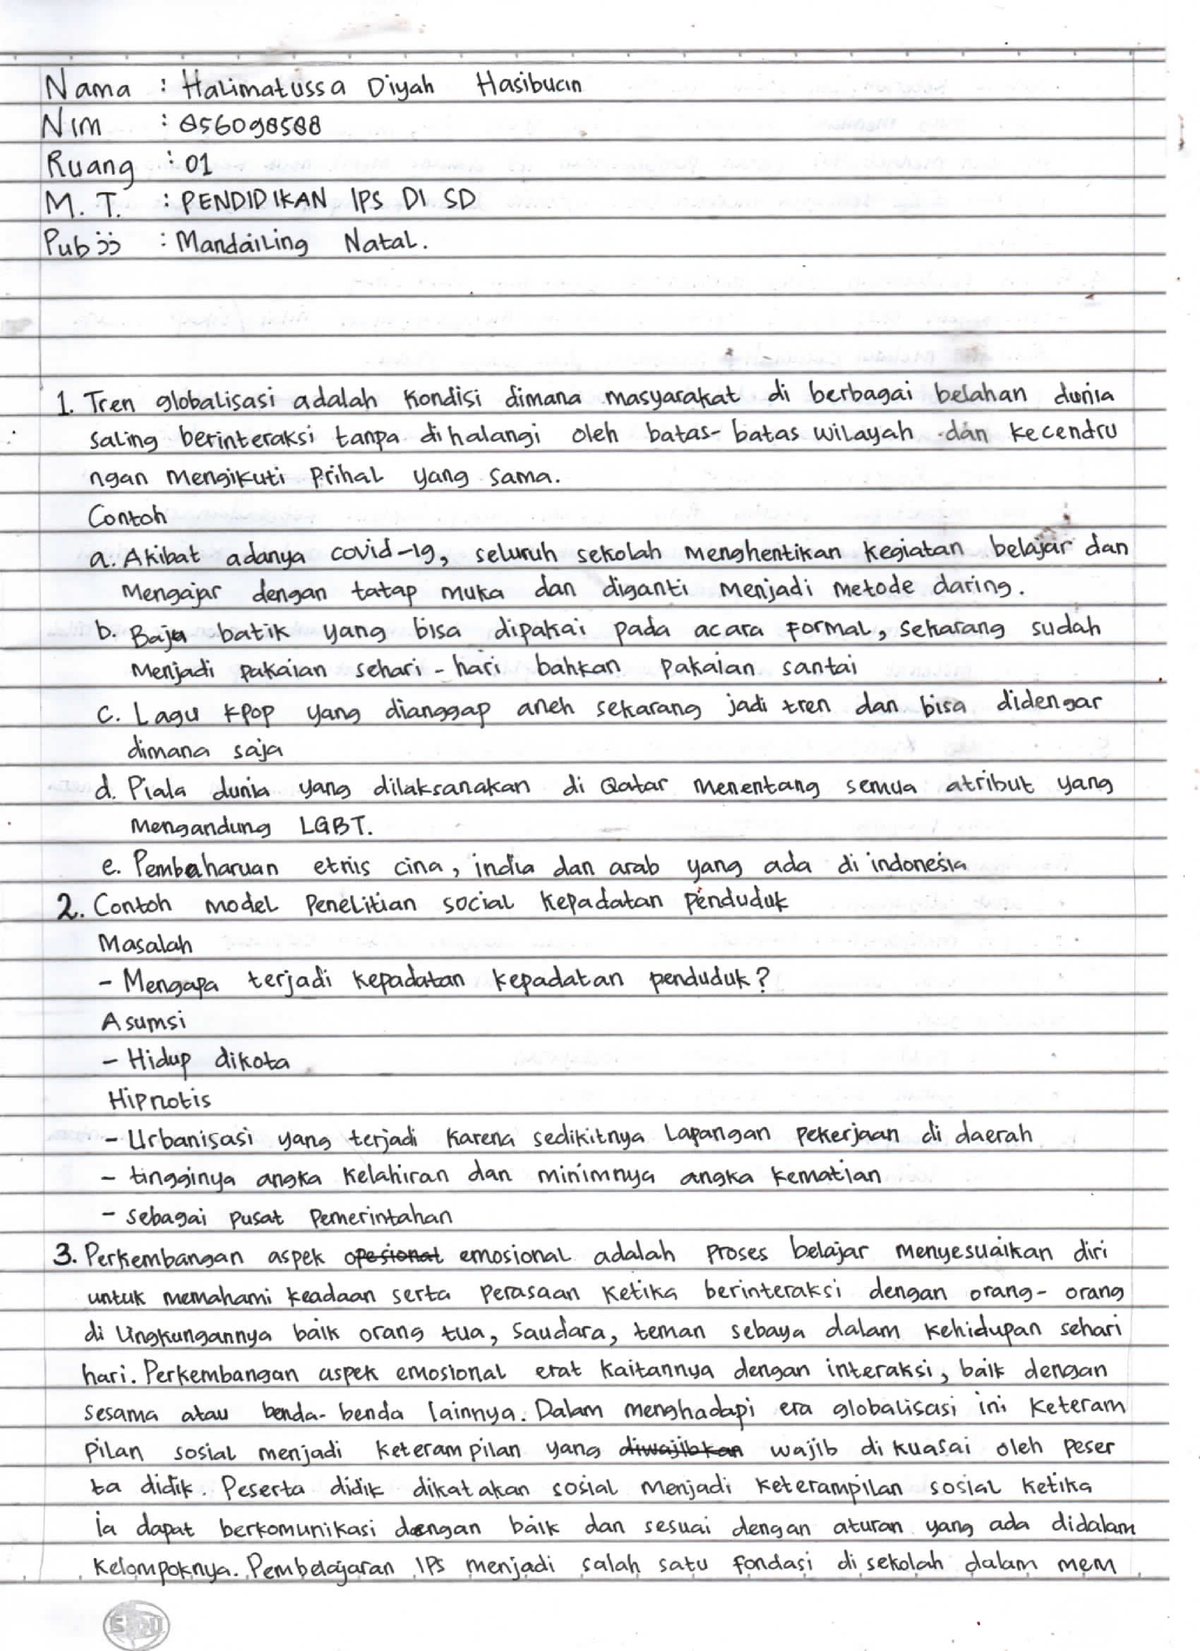 Nama : Halimatussa Diyah Hasibuan
Nim : 856098588
Ruang : 01
M. T. : PENDIDIKAN IPS DI SD
Pubjj : Mandailing Natal.
1. Tren globalisasi adalah kondisi dimana masyarakat di berbagai belahan dunia
saling berinteraksi tanpa dihalangi oleh batas-batas wilayah dan kecendru
ngan mengikuti prihal yang sama.
Contoh
a. Akibat adanya covid-19, seluruh sekolah menghentikan kegiatan belajar dan
Mengajar dengan tatap muka dan diganti menjadi metode daring.
b. Baju batik yang bisa dipakai pada acara formal, sekarang sudah
Menjadi pakaian sehari-hari bahkan pakaian santai
c. Lagu kpop yang dianggap aneh sekarang jadi tren dan bisa didengar
dimana saja
d. Piala dunia yang dilaksanakan di Qatar menentang semua atribut yang
Mengandung LGBT.
e. Pembaharuan etnis cina, india dan arab yang ada di indonesia
2. Contoh model penelitian social kepadatan penduduk
Masalah
- Mengapa terjadi kepadatan kepadatan penduduk?
Asumsi
- Hidup dikota
Hipnotis
- Urbanisasi yang terjadi karena sedikitnya lapangan pekerjaan di daerah
- tingginya angka kelahiran dan minimnya angka kematian
- sebagai pusat pemerintahan
3. Perkembangan aspek opesional emosional adalah proses belajar menyesuaikan diri
untuk memahami keadaan serta perasaan ketika berinteraksi dengan orang-orang
di lingkungannya baik orang tua, saudara, teman sebaya dalam kehidupan sehari
hari. Perkembangan aspek emosional erat kaitannya dengan interaksi, baik dengan
sesama atau benda-benda lainnya. Dalam menghadapi era globalisasi ini keteram
pilan sosial menjadi keterampilan yang diwajibkan wajib di kuasai oleh peser
ta didik. Peserta didik dikatakan sosial menjadi keterampilan sosial ketika
ia dapat berkomunikasi dengan baik dan sesuai dengan aturan yang ada didalam
kelompoknya. Pembelajaran IPS menjadi salah satu fondasi di sekolah dalam mem